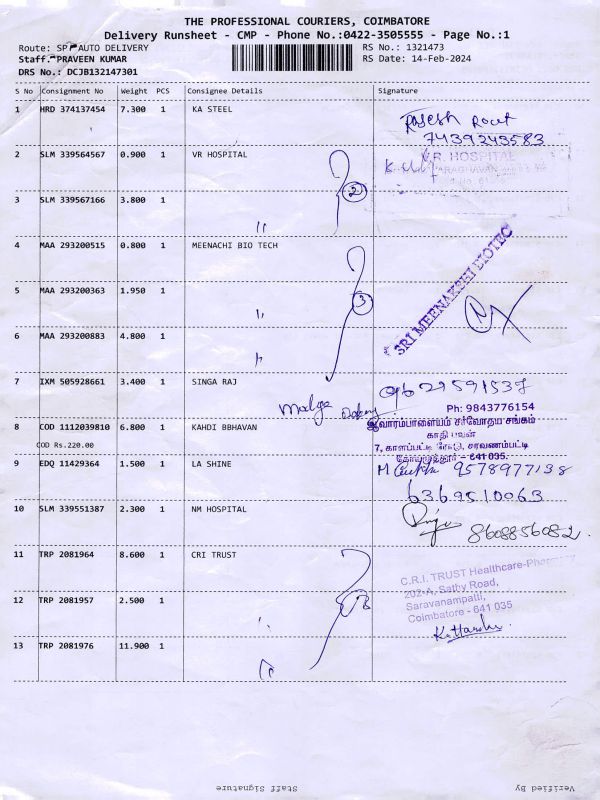 THE PROFESSIONAL COURIERS, COIMBATORE
Delivery Runsheet - CMP - Phone No.:0422-3505555 - Page No.:1
Route: SP AUTO DELIVERY
Staff. PRAVEEN KUMAR
DRS No.: DCJB132147301
RS No.: 1321473
RS Date: 14-Feb-2024
S No Consignment No Weight PCS Consignee Details Signature
1 HRD 374137454 7.300 1 KA STEEL
Rajesh Rout
7439243583
2 SLM 339564567 0.900 1 VR HOSPITAL
V.R. HOSPITAL
2
3 SLM 339567166 3.800 1 "
4 MAA 293200515 0.800 1 MEENACHI BIO TECH
SRI MEENAKSHI BIOTEC
5 MAA 293200363 1.950 1 "
3
6 MAA 293200883 4.800 1 "
7 IXM 505928661 3.400 1 SINGA RAJ
9629591537
Ph: 9843776154
8 COD 1112039810 6.800 1 KAHDI BBHAVAN
COD Rs.220.00
ஆவாரம்பாளையம் சர்வோதய சங்கம்
காதி பவன்
7, காளப்பட்டி ரோடு, சரவணம்பட்டி
கோயமுத்தூர் - 641 035.
9 EDQ 11429364 1.500 1 LA SHINE
9578977138
6369510063
10 SLM 339551387 2.300 1 NM HOSPITAL
8608856082.
11 TRP 2081964 8.600 1 CRI TRUST
C.R.I. TRUST Healthcare-Pharmacy
202-A, Sathy Road,
Saravanampatti,
Coimbatore - 641 035
12 TRP 2081957 2.500 1 "
13 TRP 2081976 11.900 1 "
Staff Signature
Verified By